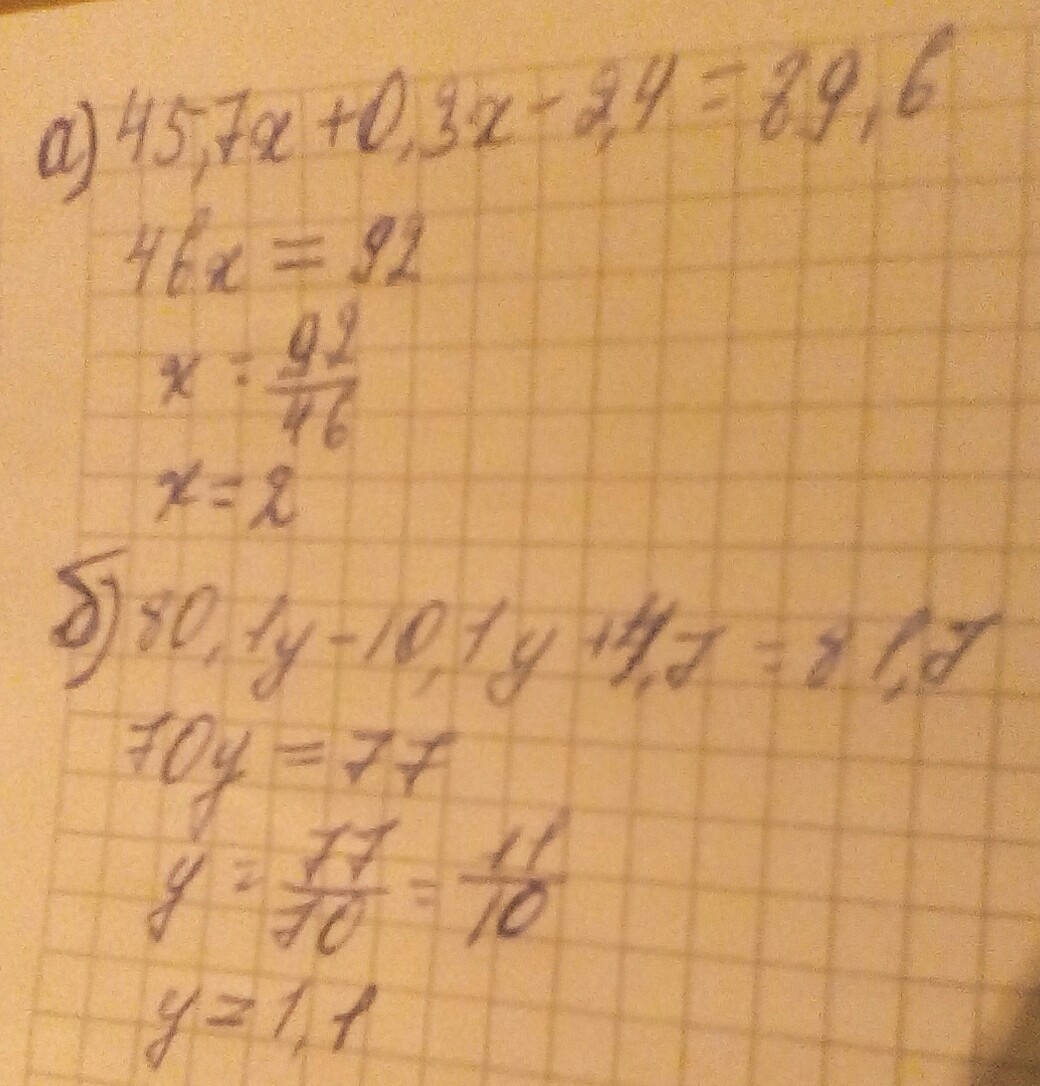 а) 45,7x + 0,3x - 2,4 = 89,6
46x = 92
x = 92/46
x = 2
б) 80,1y - 10,1y + 4,7 = 81,7
70y = 77
y = 77/70 = 11/10
y = 1,1